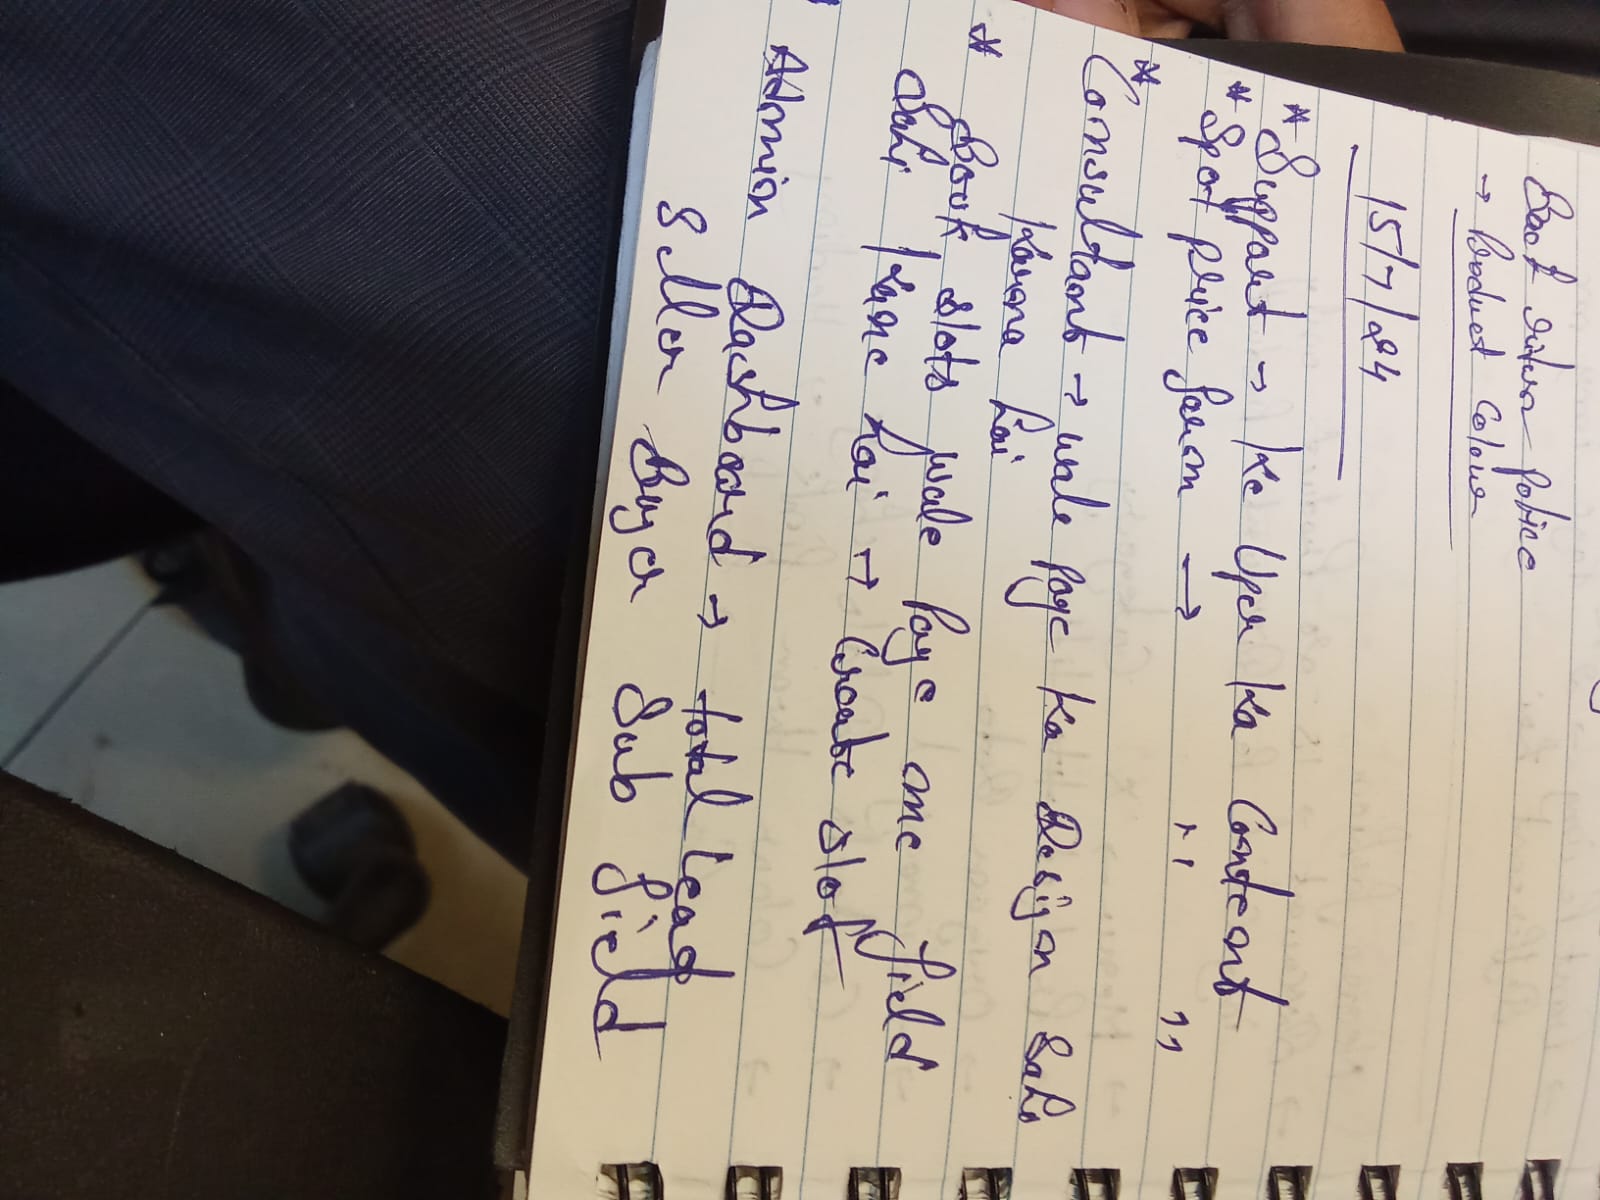 Back return police
→ Product Colour
15/7/24
* Support → Ke Uper Ka Content
* Spot price form → '' ,,
* Consultant → wale page Ka Design Sahi
Karna hai
* Book slots wale Page me field
Sahi Karne hai → Create slot
Admin Dashboard → total Lead
Seller Buyer Sub field